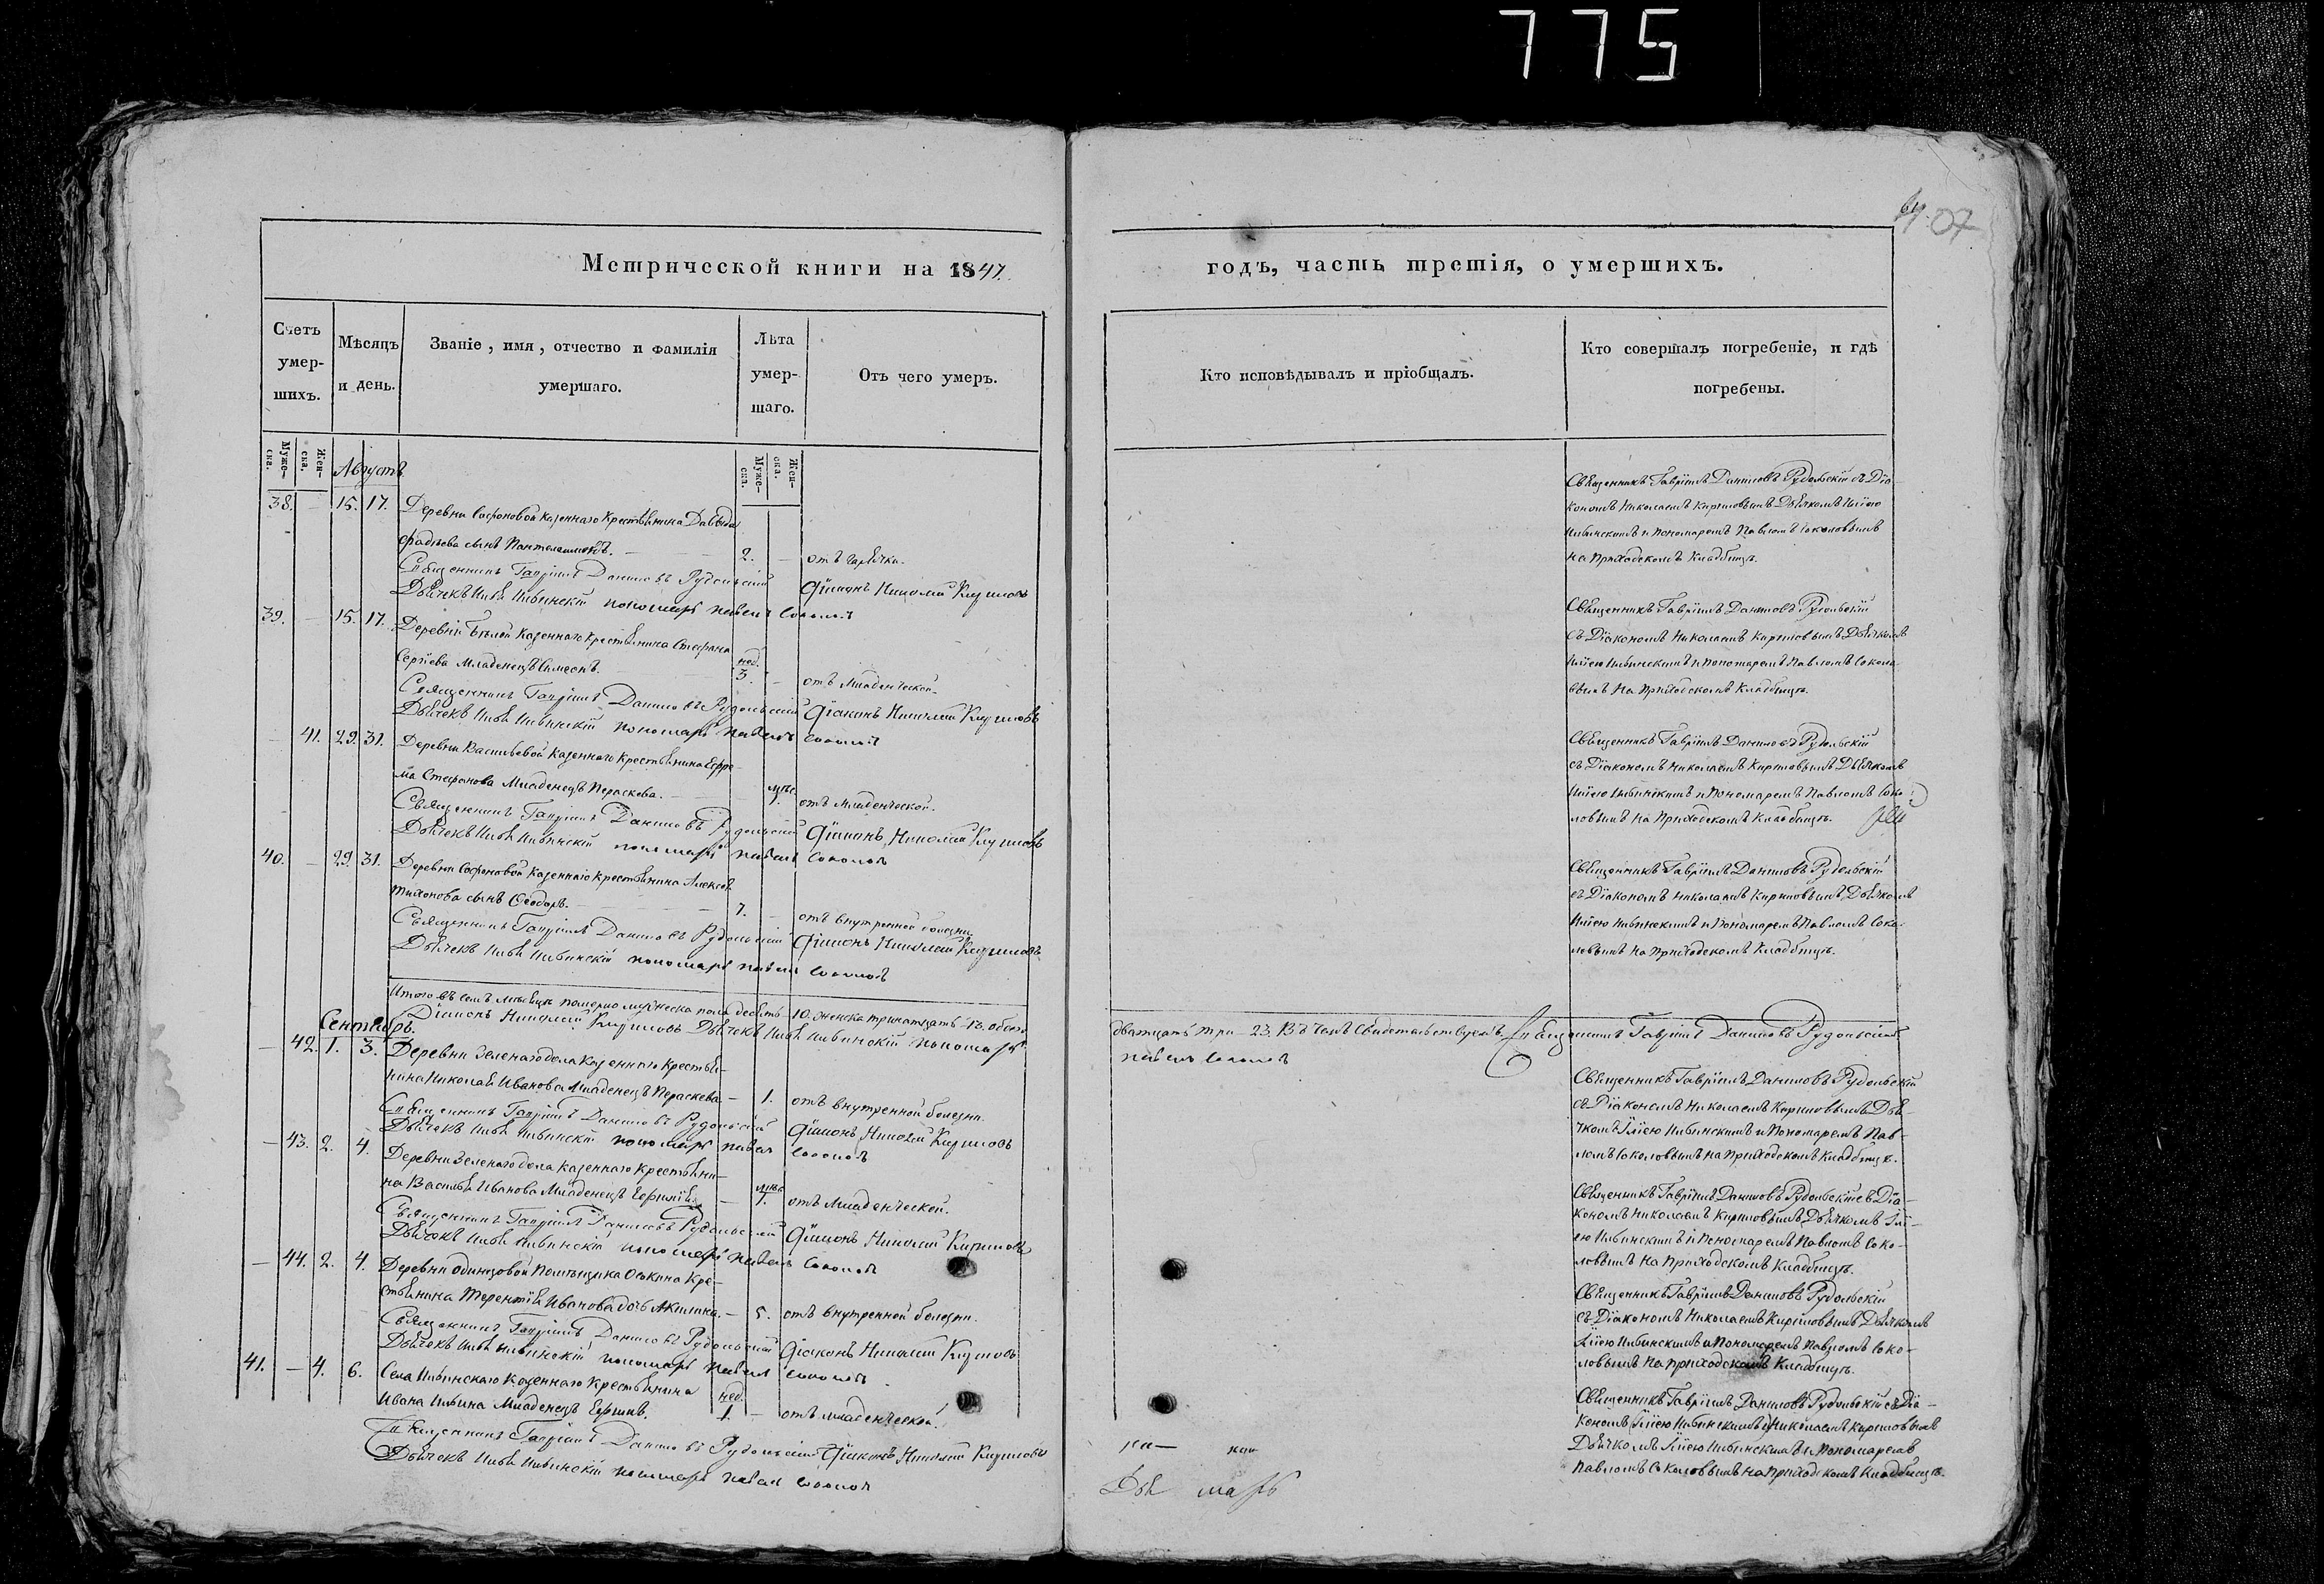 775
67. 07
Метрической книги на 1847.
годъ, часть третія, о умершихъ.
Счетъ умер-шихъ.
Мѣсяцъ и день.
Званіе, имя, отчество и фамилія умершаго.
Лѣта умер-шаго.
Отъ чего умеръ.
Кто исповѣдывалъ и пріобщалъ.
Кто совершалъ погребеніе, и гдѣ погребены.
Муже-ска.
Жен-ска.
Муже-ска.
Жен-ска.
Августъ
38. — 15. 17. Деревни Софоновой казеннаго крестьянина Давыда
Фадѣева сынъ Пантелеимонъ. — 2. — отъ горячки.
Священникъ Гавріилъ Даниловъ Рудольскій Діаконъ Николай Кириловъ
Дьячекъ Илья Ильинскій пономарь Павелъ Соколовъ
Священникъ Гавріилъ Даниловъ Рудольскій съ Діа
кономъ Николаемъ Кириловымъ Дьячкомъ Иліею
Ильинскимъ и Пономаремъ Павломъ Соколовымъ
на Приходскомъ Кладбищѣ.
39. — 15. 17. Деревни Бѣлой казеннаго крестьянина Стефана
Сергіева Младенецъ Симеонъ. нед. 3. — отъ Младенческой.
Священникъ Гавріилъ Даниловъ Рудольскій Діаконъ Николай Кириловъ
Дьячекъ Илья Ильинскій пономарь Павелъ Соколовъ
Священникъ Гавріилъ Даниловъ Рудольскій
съ Діакономъ Николаемъ Кириловымъ Дьячкомъ
Иліею Ильинскимъ и Пономаремъ Павломъ Соколо
вымъ на Приходскомъ Кладбищѣ.
— 41. 29. 31. Деревни Васильевой казеннаго крестьянина Ефре
ма Стефанова Младенецъ Параскева. — мѣс. 1. отъ Младенческой.
Священникъ Гавріилъ Даниловъ Рудольскій Діаконъ Николай Кириловъ
Дьячекъ Илья Ильинскій пономарь Павелъ Соколовъ
Священникъ Гавріилъ Даниловъ Рудольскій
съ Діакономъ Николаемъ Кириловымъ Дьячкомъ
Иліею Ильинскимъ и Пономаремъ Павломъ Соко
ловымъ на Приходскомъ Кладбищѣ.
40. — 29. 31. Деревни Софоновой казеннаго крестьянина Алексѣя
Тихонова сынъ Ѳеодоръ. — 7. — отъ внутренной болезни.
Священникъ Гавріилъ Даниловъ Рудольскій Діаконъ Николай Кириловъ
Дьячекъ Илья Ильинскій пономарь Павелъ Соколовъ
Священникъ Гавріилъ Даниловъ Рудольскій
съ Діакономъ Николаемъ Кириловымъ Дьячкомъ
Иліею Ильинскимъ и Пономаремъ Павломъ Соко
ловымъ на Приходскомъ Кладбищѣ.
Итого въ семъ мѣсяцѣ померло мужеска пола десять — 10. женска тринатцать — 13. обоего
дватцать три — 23. Въ чемъ свидетельствуемъ. Священникъ Гавріилъ Даниловъ Рудольскій
Діаконъ Николай Кириловъ Дьячекъ Илья Ильинскій пономарь
Павелъ Соколовъ
Сентябрь.
— 42. 1. 3. Деревни Зеленаго дола казеннаго крестья-
нина Николая Иванова Младенецъ Параскева. — 1. отъ внутренной болезни.
Священникъ Гавріилъ Даниловъ Рудольскій Діаконъ Николай Кириловъ
Дьячекъ Илья Ильинскій пономарь Павелъ Соколовъ
Священникъ Гавріилъ Даниловъ Рудольскій
съ Діакономъ Николаемъ Кириловымъ Дья-
чкомъ Иліею Ильинскимъ и Пономаремъ Пав-
ломъ Соколовымъ на Приходскомъ Кладбищѣ.
— 43. 2. 4. Деревни Зеленаго дола казеннаго крестьяни-
на Василья Иванова Младенецъ — мѣс. 1. отъ Младенческой.
Священникъ Гавріилъ Даниловъ Рудольскій Діаконъ Николай Кириловъ
Дьячекъ Илья Ильинскій пономарь Павелъ Соколовъ
Священникъ Гавріилъ Даниловъ Рудольскій съ Діа-
кономъ Николаемъ Кириловымъ Дьячкомъ Илі-
ею Ильинскимъ и Пономаремъ Павломъ Соко-
ловымъ на Приходскомъ Кладбищѣ.
— 44. 2. 4. Деревни Одинцовой Помѣщика Оскина кре-
стьянина Терентія Иванова дочь Акилина. — 5. отъ внутренной болезни.
Священникъ Гавріилъ Даниловъ Рудольскій Діаконъ Николай Кириловъ
Дьячекъ Илья Ильинскій пономарь Павелъ Соколовъ
Священникъ Гавріилъ Даниловъ Рудольскій
съ Діакономъ Николаемъ Кириловымъ Дьячкомъ
Иліею Ильинскимъ и Пономаремъ Павломъ Соко-
ловымъ на Приходскомъ Кладбищѣ.
41. — 4. 6. Села Ильинскаго казеннаго крестьянина
Ивана Ильина Младенецъ нед. 1. — отъ младенческой.
Священникъ Гавріилъ Даниловъ Рудольскій Діаконъ Николай Кириловъ
Дьячекъ Илья Ильинскій пономарь Павелъ Соколовъ
Священникъ Гавріилъ Даниловъ Рудольскій съ Діа-
кономъ Иліею Ильинскимъ Николаемъ Кириловымъ
Дьячкомъ Иліею Ильинскимъ и Пономаремъ
Павломъ Соколовымъ на Приходскомъ Кладбищѣ.